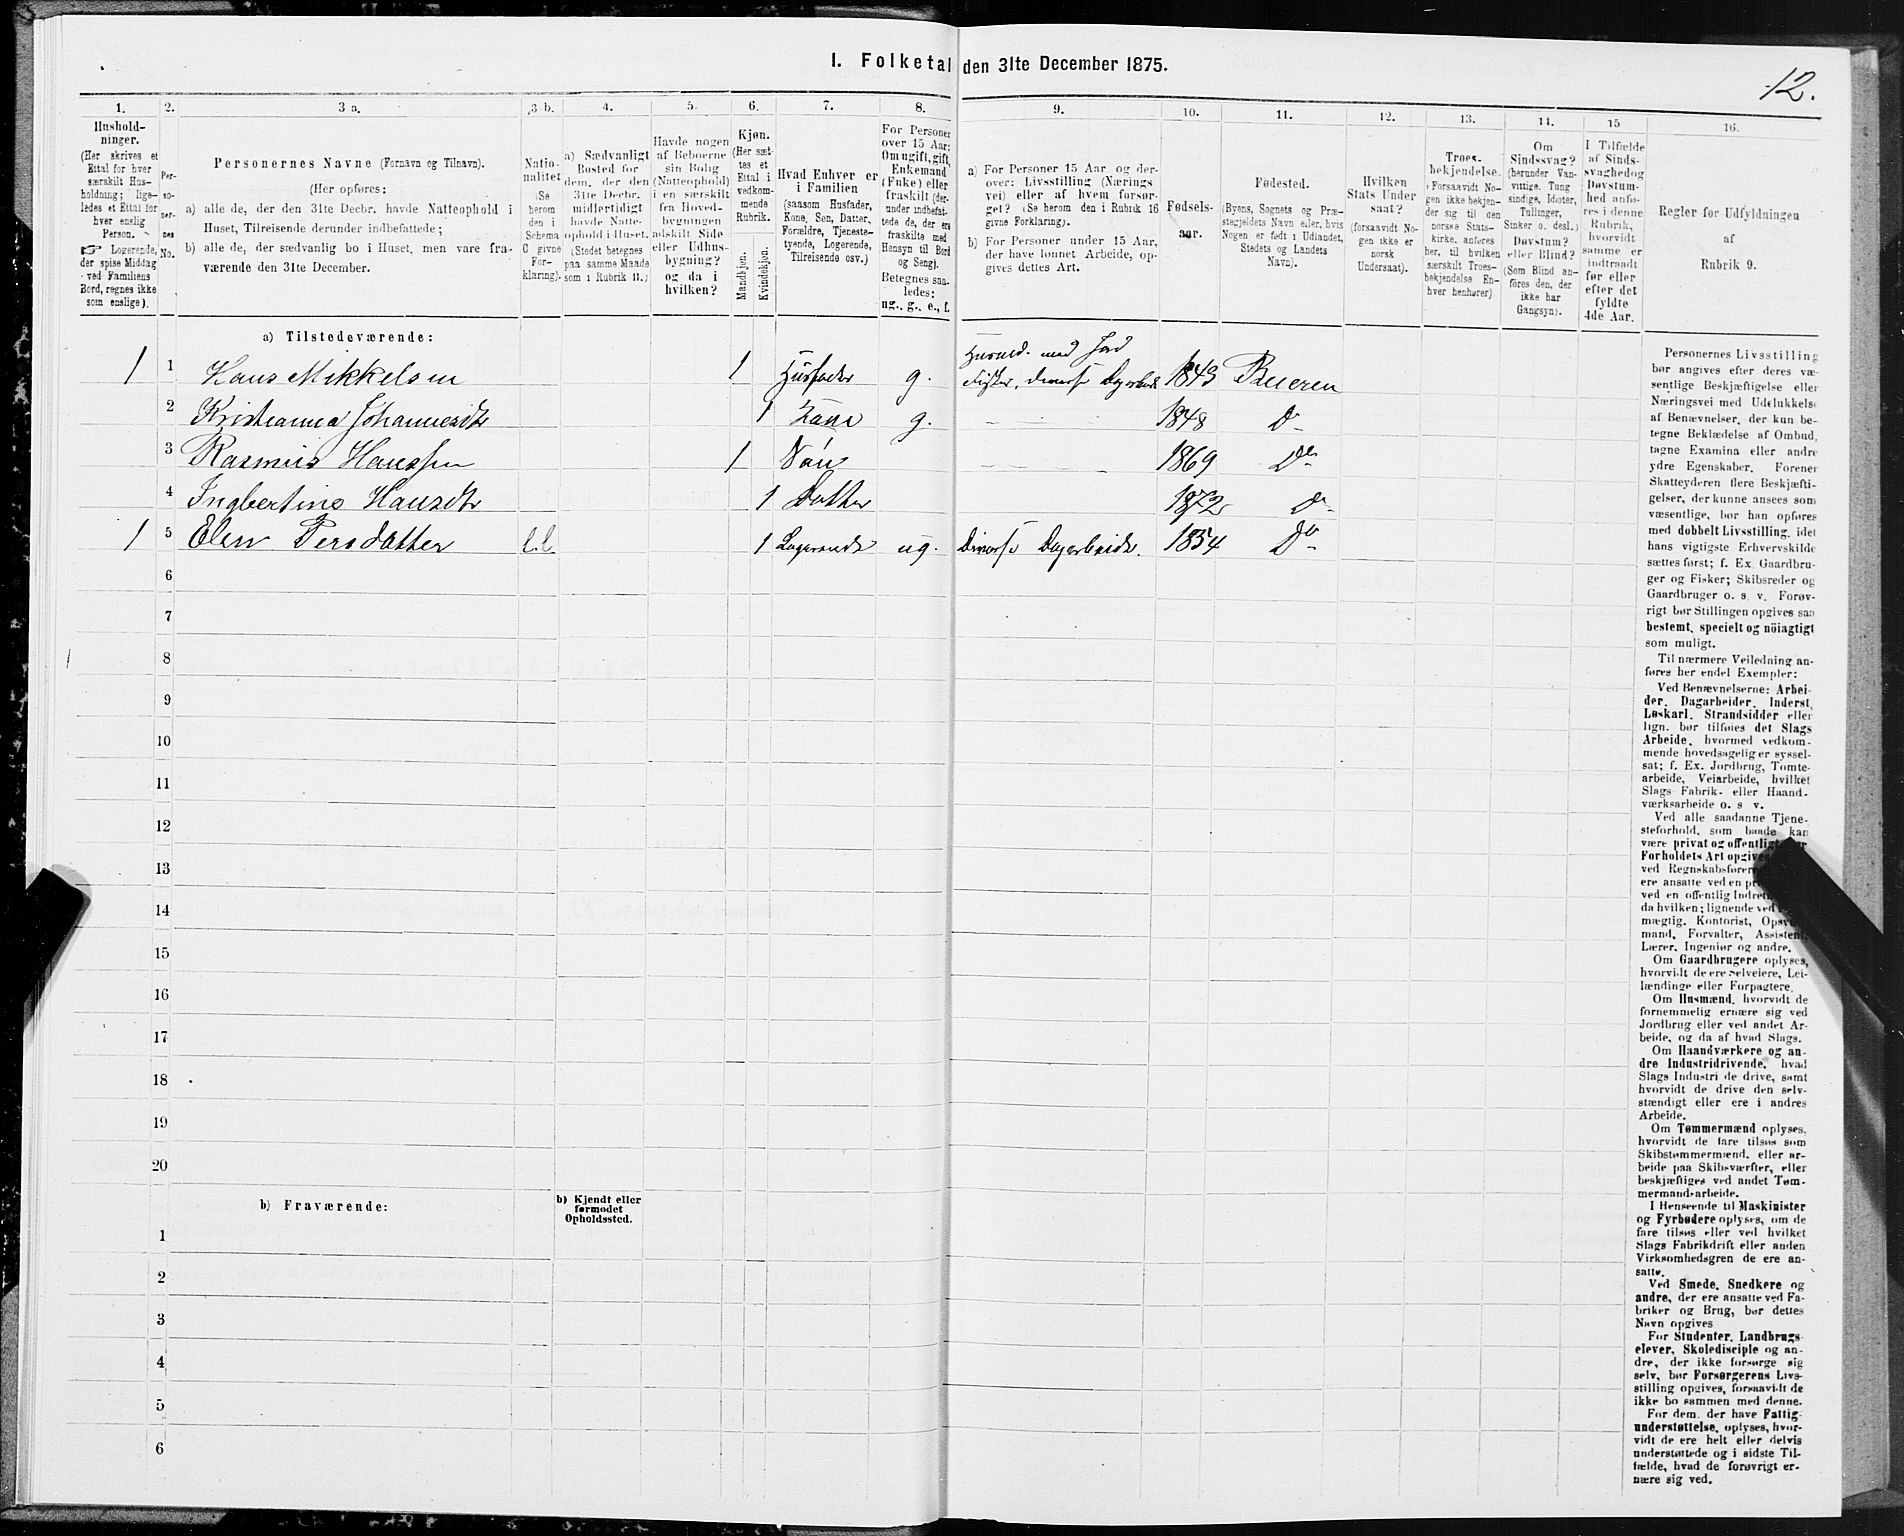 I. Folketal den 31te December 1875.
12.
1.
2.
3 a.
3 b.
4.
5.
6.
7.
8.
9.
10.
11.
12.
13.
14.
15
16.
Hushold-
ninger.
(Her skrives et
Ettal for hver
særskilt Hus-
holdning; lige-
ledes et Ettal for
hver enslig
Person.
☞ Logerende,
der spise Middag
ved Familiens
Bord, regnes ikke
som enslige).
Per-
so-
ner-
nes
No.
Personernes Navne (Fornavn og Tilnavn).
(Her opføres:
a) alle de, der den 31te Decbr. havde Natteophold i
Huset, Tilreisende derunder indbefattede;
b) alle de, der sædvanlig bo i Huset, men vare fra-
værende den 31te December.
Natio-
nalitet
(Se
herom
den i
Schema
O givne
For-
klaring).
a) Sædvanligt
Bosted for
dem, der den
31te Decbr.
midlertidigt
havde Natte-
ophold i Huset.
(Stedet betegnes
paa samme Maade
som i Rubrik 11.)
Havde nogen
af Beboerne
sin Bolig
(Natteophold)
i en særskilt
fra Hoved-
bygningen
adskilt Side
eller Udhus-
bygning?
og da i
hvilken?
Kjøn.
(Her sæt-
tes et
Ettal i
vedkom-
mende
Rubrik.
Mandkjøn.
Kvindekjøn.
Hvad Enhver er
i Familien
(saasom Husfader,
Kone, Søn, Datter,
Forældre, Tjeneste-
tyende, Logerende,
Tilreisende osv.)
For Personer
over 15 Aar:
Om ugift, gift,
Enkemand
(Enke) eller
fraskilt (der-
under indbefat-
tede de, der ere
fraskilte med
Hensyn til Bord
og Seng).
Betegnes saa-
ledes:
ug., g., e., f.
a) For Personer 15 Aar og der-
over: Livsstilling (Nærings
vei) eller af hvem forsør-
get? (Se herom den i Rubrik 16
givne Forklaring).
b) For Personer under 15 Aar,
der have lønnet Arbeide, op-
gives dettes Art.
Fødsels-
aar.
Fødested.
(Byens, Sognets og Præ-
stegjeldets Navn eller, hvis
Nogen er født i Udlandet,
Stedets og Landets
Navn).
Hvilken
Stats Under
saat?
(forsaavidt No-
gen ikke er
norsk
Undersaat).
Troes-
bekjendelse.
(Forsaavidt No-
gen ikke bekjen-
der sig til den
norske Stats-
kirke, anføres
her, til hvilken
særskilt Troes-
bekjendelse En-
hver henhører)
Om
Sindssvag?
(herunder Van-
vittige, Tung
sindige, Idioter,
Tullinger,
Sinker o. desl.)
Døvstum?
eller Blind?
(Som Blind an-
føres den, der
ikke har
Gangsyn).
I Tilfælde
af Sinds-
svaghed og
Døvstum-
hed anfø-
res i denne
Rubrik,
hvorvidt
samme er
indtraadt
før eller
efter det
fyldte
4de Aar.
Regler for Udfyldningen
af
Rubrik 9.
a) Tilstedeværende:
Husmd. med Jord
1 1 Hans Mikkelsen 1 Husfader g. Fisker, diverse Dagarbeide 1843 Bueren
2 Kristianna Johannesdtr 1 Kone g. – – – 1848 Do
3 Rasmus Hanssen 1 Søn – – – 1869 Do
4 Ingbertine Hansdtr 1 Datter 1872 Do
1 5 Elen Persdatter l.l 1 Logerende ug. Diverse Dagarbeide. 1854 Do
6
7
8
9
10
11
12
13
14
15
16
17
18
19
20
b) Fraværende:
b) Kjendt eller
formodet
Opholdssted.
1
2
3
4
5
6
Personernes Livsstilling
bør angives efter deres væ-
sentlige Beskjæftigelse eller
Næringsvei med Udelukkelse
af Benævnelser, der kun be-
tegne Beklædelse af Ombud,
tagne Examina eller andre
ydre Egenskaber. Forener
Skatteyderen flere Beskjæfti-
gelser, der kunne ansees som
væsentlige, bør han opføres
med dobbelt Livsstilling, idet
hans vigtigste Erhvervskilde
sættes først; f. Ex. Gaardbru-
ger og Fisker; Skibsreder og
Gaardbruger o. s. v. Forøv-
rigt bør Stillingen opgives saa
bestemt, specielt og nöiagtigt
som muligt.
Til nærmere Veiledning an-
føres her endel Exempler:
Ved Benævnelserne: Arbei-
der, Dagarbeider, Inderst,
Løskarl, Strandsidder eller
lign. bør tilføies det Slags
Arbeide, hvormed vedkom-
mende hovedsagelig er syssel-
sat; f. Ex. Jordbrug, Tomte-
arbeide, Veiarbeide, hvilket
Slags Fabrik- eller Haand-
værksarbeide o. s v.
Ved alle saadanne Tjene-
steforhold, som baade kan
være privat og offentligt,
Forholdets Art opgives
ved Regnskabsfører
ere ansatte ved en
ved en offentlig
da hvilken; lignende ved
mægtig, Kontorist,
mand, Forvalter, Assistent,
Lærer, Ingeniør og andre.
Om Gaardbrugere oplyses,
hvorvidt de ere Selveiere, Lei-
lændinge eller Forpagtere.
Om Husmænd, hvorvidt de
fornemmelig ernære sig ved
Jordbrug eller ved andet Ar-
beide, og da af hvad Slags.
Om Haandværkere og an-
dre Industridrivende, hvad
Slags Industri de drive, samt
hvorvidt de drive den selv-
stændigt eller ere i andres
Arbeide.
Om Tømmermænd oplyses,
hvorvidt de fare tilsøs som
Skibstømmermænd, eller ar-
beide paa Skibsværfter, eller
beskjæftiges ved andet Tøm-
mermandsarbeide.
I Henseende til Maskinister
og Fyrbødere oplyses, om de
fare tilsøs eller ved hvilket
Slags Fabrikdrift eller anden
Virksomhedsgren de ere an-
satte.
Ved Smede, Snedkere og
andre, der ere ansatte ved Fa-
briker og Brug, bør dettes
Navn opgives
For Studenter, Landbrugs-
elever, Skoledisciple og an-
dre, der ikke forsørge sig
selv, bør Forsørgerens Livs-
stilling opgives, forsaavidt de
ikke bo sammen med denne.
For dem, der have Fattig-
understøttelse, oplyses, hvor-
vidt de ere helt eller delvis
understøttede og i sidste Til-
fælde, hvad de forøvrigt er-
nære sig ved.